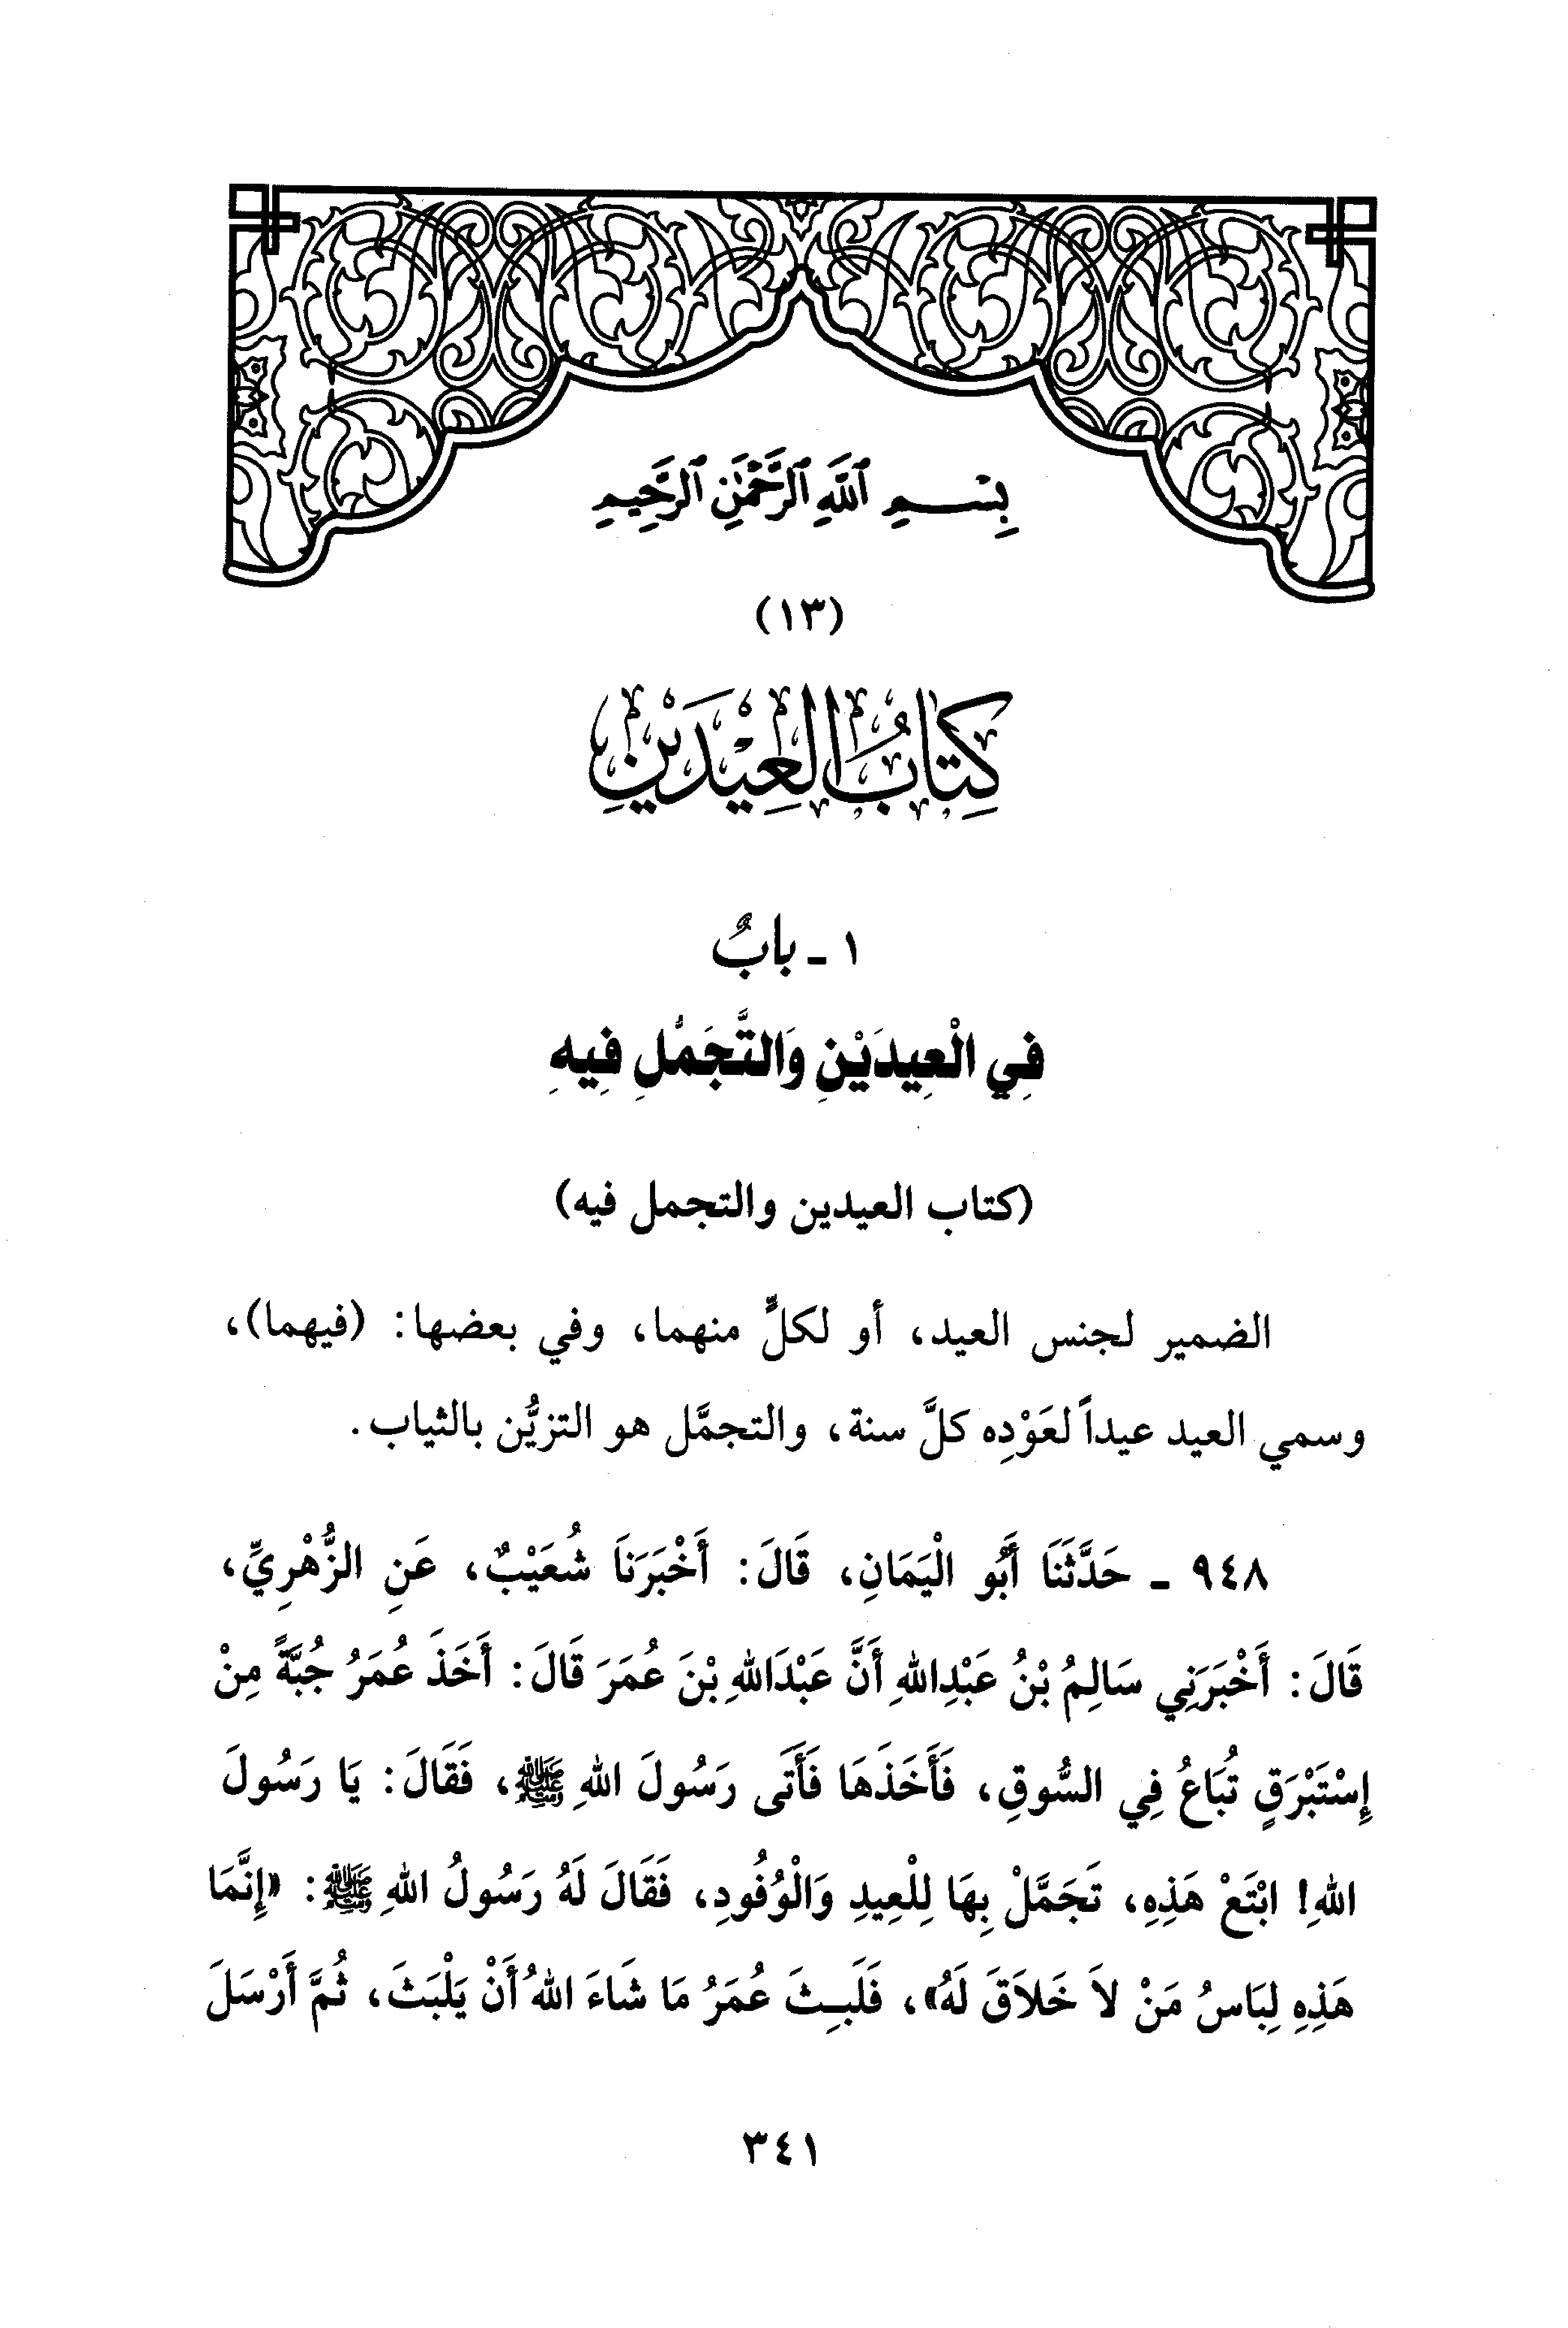 بِسْمِ ٱللَّهِ ٱلرَّحْمَٰنِ ٱلرَّحِيمِ
(١٣)
كِتَابُ العِيْدَيْنِ
١ ـ بابٌ
فِي الْعِيدَيْنِ وَالتَّجَمُّلِ فِيهِ
(كتاب العيدين والتجمل فيه)
الضمير لجنس العيد، أو لكلٍّ منهما، وفي بعضها: (فيهما)،
وسمي العيد عيداً لعَوْدِه كلَّ سنة، والتجمَّل هو التزيُّن بالثياب.
٩٤٨ ـ حَدَّثَنَا أَبُو الْيَمَانِ، قَالَ: أَخْبَرَنَا شُعَيْبٌ، عَنِ الزُّهْرِيِّ،
قَالَ: أَخْبَرَنِي سَالِمُ بْنُ عَبْدِاللهِ أَنَّ عَبْدَاللهِ بْنَ عُمَرَ قَالَ: أَخَذَ عُمَرُ جُبَّةً مِنْ
إِسْتَبْرَقٍ تُبَاعُ فِي السُّوقِ، فَأَخَذَهَا فَأَتَى رَسُولَ اللهِ ﷺ، فَقَالَ: يَا رَسُولَ
اللهِ! ابْتَعْ هَذِهِ، تَجَمَّلْ بِهَا لِلْعِيدِ وَالْوُفُودِ، فَقَالَ لَهُ رَسُولُ اللهِ ﷺ: «إِنَّمَا
هَذِهِ لِبَاسُ مَنْ لاَ خَلاَقَ لَهُ»، فَلَبِثَ عُمَرُ مَا شَاءَ اللهُ أَنْ يَلْبَثَ، ثُمَّ أَرْسَلَ
٣٤١